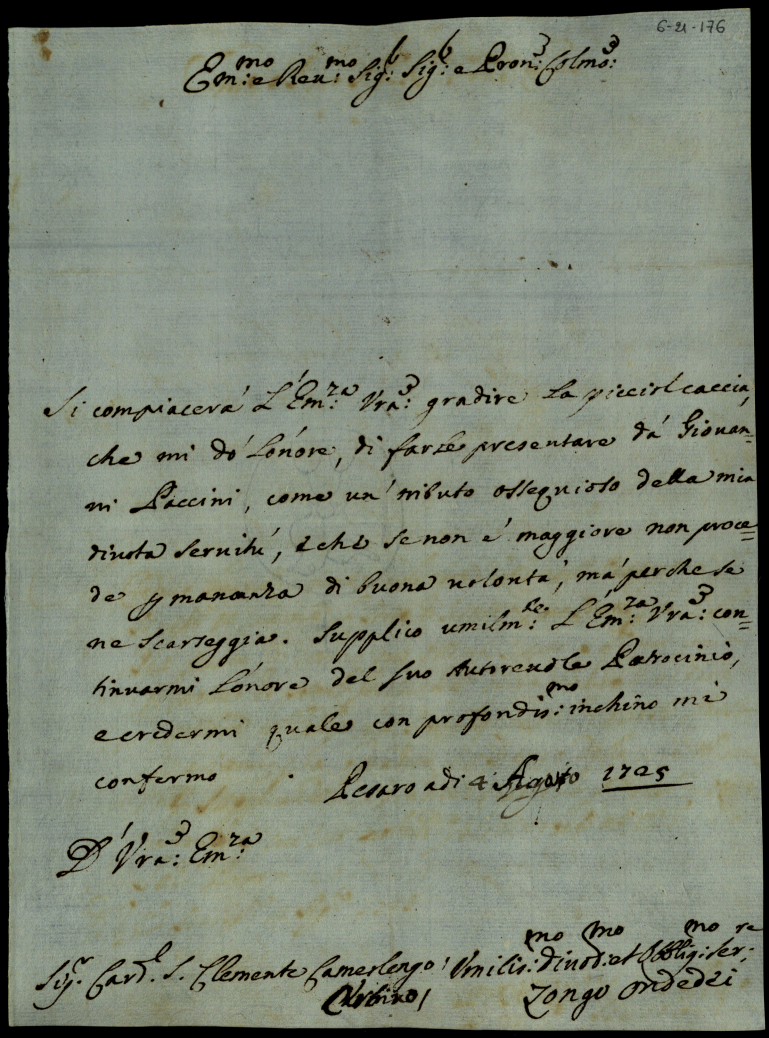 6-21-176
Em:mo e Reu:mo Sig:r Sig:r e Pron:e Colmo:
Si compiacerá L'Em:za Vra: gradire la picciol caccia,
che mi dó l'onore, di farle presentare dá Giouan=
ni Paccini, come un' tributo ossequioso della mia
diuota seruitú, e che se non é maggiore non proce=
de p mancanza di buona uolontá, má perche se
ne scarseggia. Supplico umilm:te L'Em:za Vra: con=
tinuarmi l'onore del suo Autoreuole Patrocinio,
e credermi quale con profondis:mo inchino mi
confermo. Pesaro adi 4 Agosto 1725
D' Vra: Em:za
Sig:r Card:l S. Clemente Camerlengo Vmilis:mo Diuot:mo et Obblig:mo Ser:re
(Urbino) Zongo Ondedei